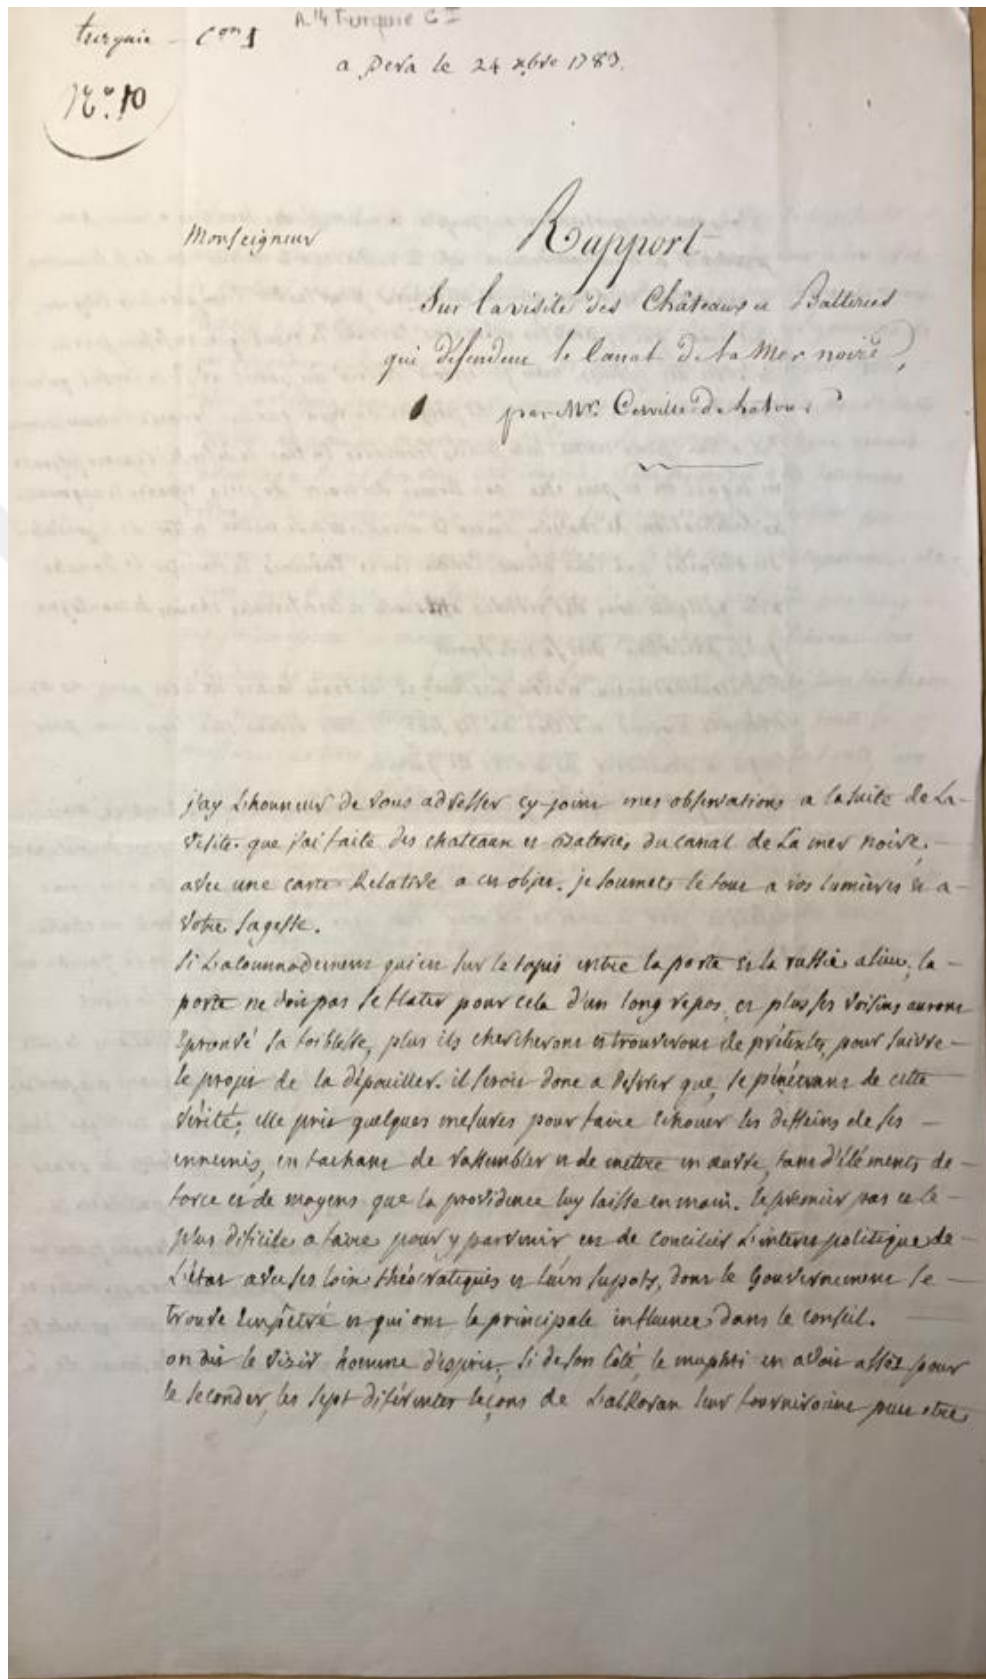 turquie - Con 1
A.14 Turquie C I
a pera le 24 xbre 1783.
No. 10
Monseigneur
Rapport
Sur la visite des Châteaux et Batteries
qui défendent le Canal de la Mer noire,
par Mr.
j'ay L'honneur de vous adresser cy-joint mes observations a la suite de La-
visite que j'ai faite des chateaux et Bateries du canal de La mer noire,-
avec une carte Relative a cet objet. je soumets le tout a vos lumières et a-
votre sagesse.
si L'acommodement qui est sur le tapis entre la porte et la russie a lieu, la-
porte ne doit pas se flater pour cela d'un long repos, et plus ses voisins auront
éprouvé sa foiblesse, plus ils chercheront et trouveront de prétextes, pour suivre-
le projet de la dépouiller. il seroit donc a desirer que, se pénétrant de cette
vérité, elle prit quelques mesures pour faire échouer les desseins de ses-
ennemis, en tachant de rassembler et de mettre en œuvre, tant d'éléments de-
force et de moyens que la providence luy laisse en main. le premier pas et le-
plus dificile a faire pour y parvenir est de concilier L'interet politique de-
L'état avec ses loix théocratiques et leurs supots, dont le Gouvernement se-
trouve Empêtré et qui ont la principale influence dans le conseil.-
on dit le vizir homme d'esprit, si de son côté, le muphti en avoit assés pour
le seconder, les sept diférentes leçons de L'alkoran leur fourniroient peut etre